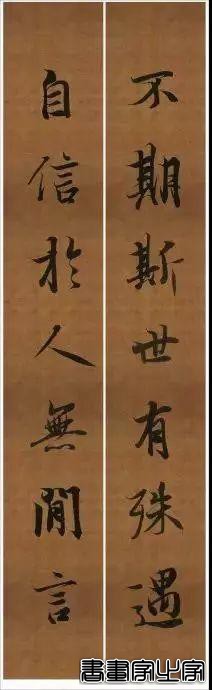 不期斯世有殊遇
自信於人無閒言
書畫家之家